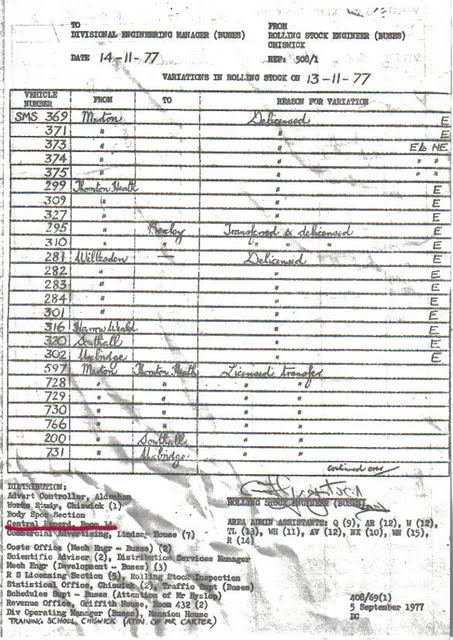 TO FROM
DIVISIONAL ENGINEERING MANAGER (BUSES) ROLLING STOCK ENGINEER (BUSES)
CHISWICK
DATE 14-11-77 REF: 508/1
VARIATIONS IN ROLLING STOCK ON 13-11-77
VEHICLE NUMBER FROM TO REASON FOR VARIATION
SMS 369 Merton Delicensed E
371 " " E
373 " " E/b NE
374 " " " "
375 " " " "
299 Thornton Heath " E
309 " " E
327 " " E
295 " Bexley Transferred & delicensed E
310 " " " " " E
281 Willesden — Delicensed E
282 " " E
283 " " E
284 " " E
301 " " E
316 Harrow Weald " E
320 Southall " E
302 Uxbridge " E
597 Merton Thornton Heath Licensed transfer
728 " " " "
729 " " " "
730 " " " "
766 " " " "
200 " Southall " "
731 " Uxbridge " "
continued over
DISTRIBUTION:
Advert Controller, Aldenham
Works Study, Chiswick (1)
Body Spec Section
Central Record, Room 14
Commercial Advertising, Lindsey House (7)
Costs Office (Mech Engr - Buses) (2)
Scientific Adviser (2), Distribution Services Manager
Mech Engr (Development - Buses) (3)
R S Licensing Section (5), Rolling Stock Inspection
Statistical Office, Chiswick (2), Traffic Supt (Buses)
Schedules Supt - Buses (Attention of Mr Hyslop)
Revenue Office, Griffith House, Room 432 (2)
Div Operating Manager (Buses), Mansion House
TRAINING SCHOOL, CHISWICK (ATTN. OF MR CARTER)
ROLLING STOCK ENGINEER (BUSES)
AREA ADMIN ASSISTANTS: Q (9), AR (12), W (12),
TL (13), WH (11), AV (12), NX (10), WN (15),
R (14)
408/69(1)
5 September 1977
DG